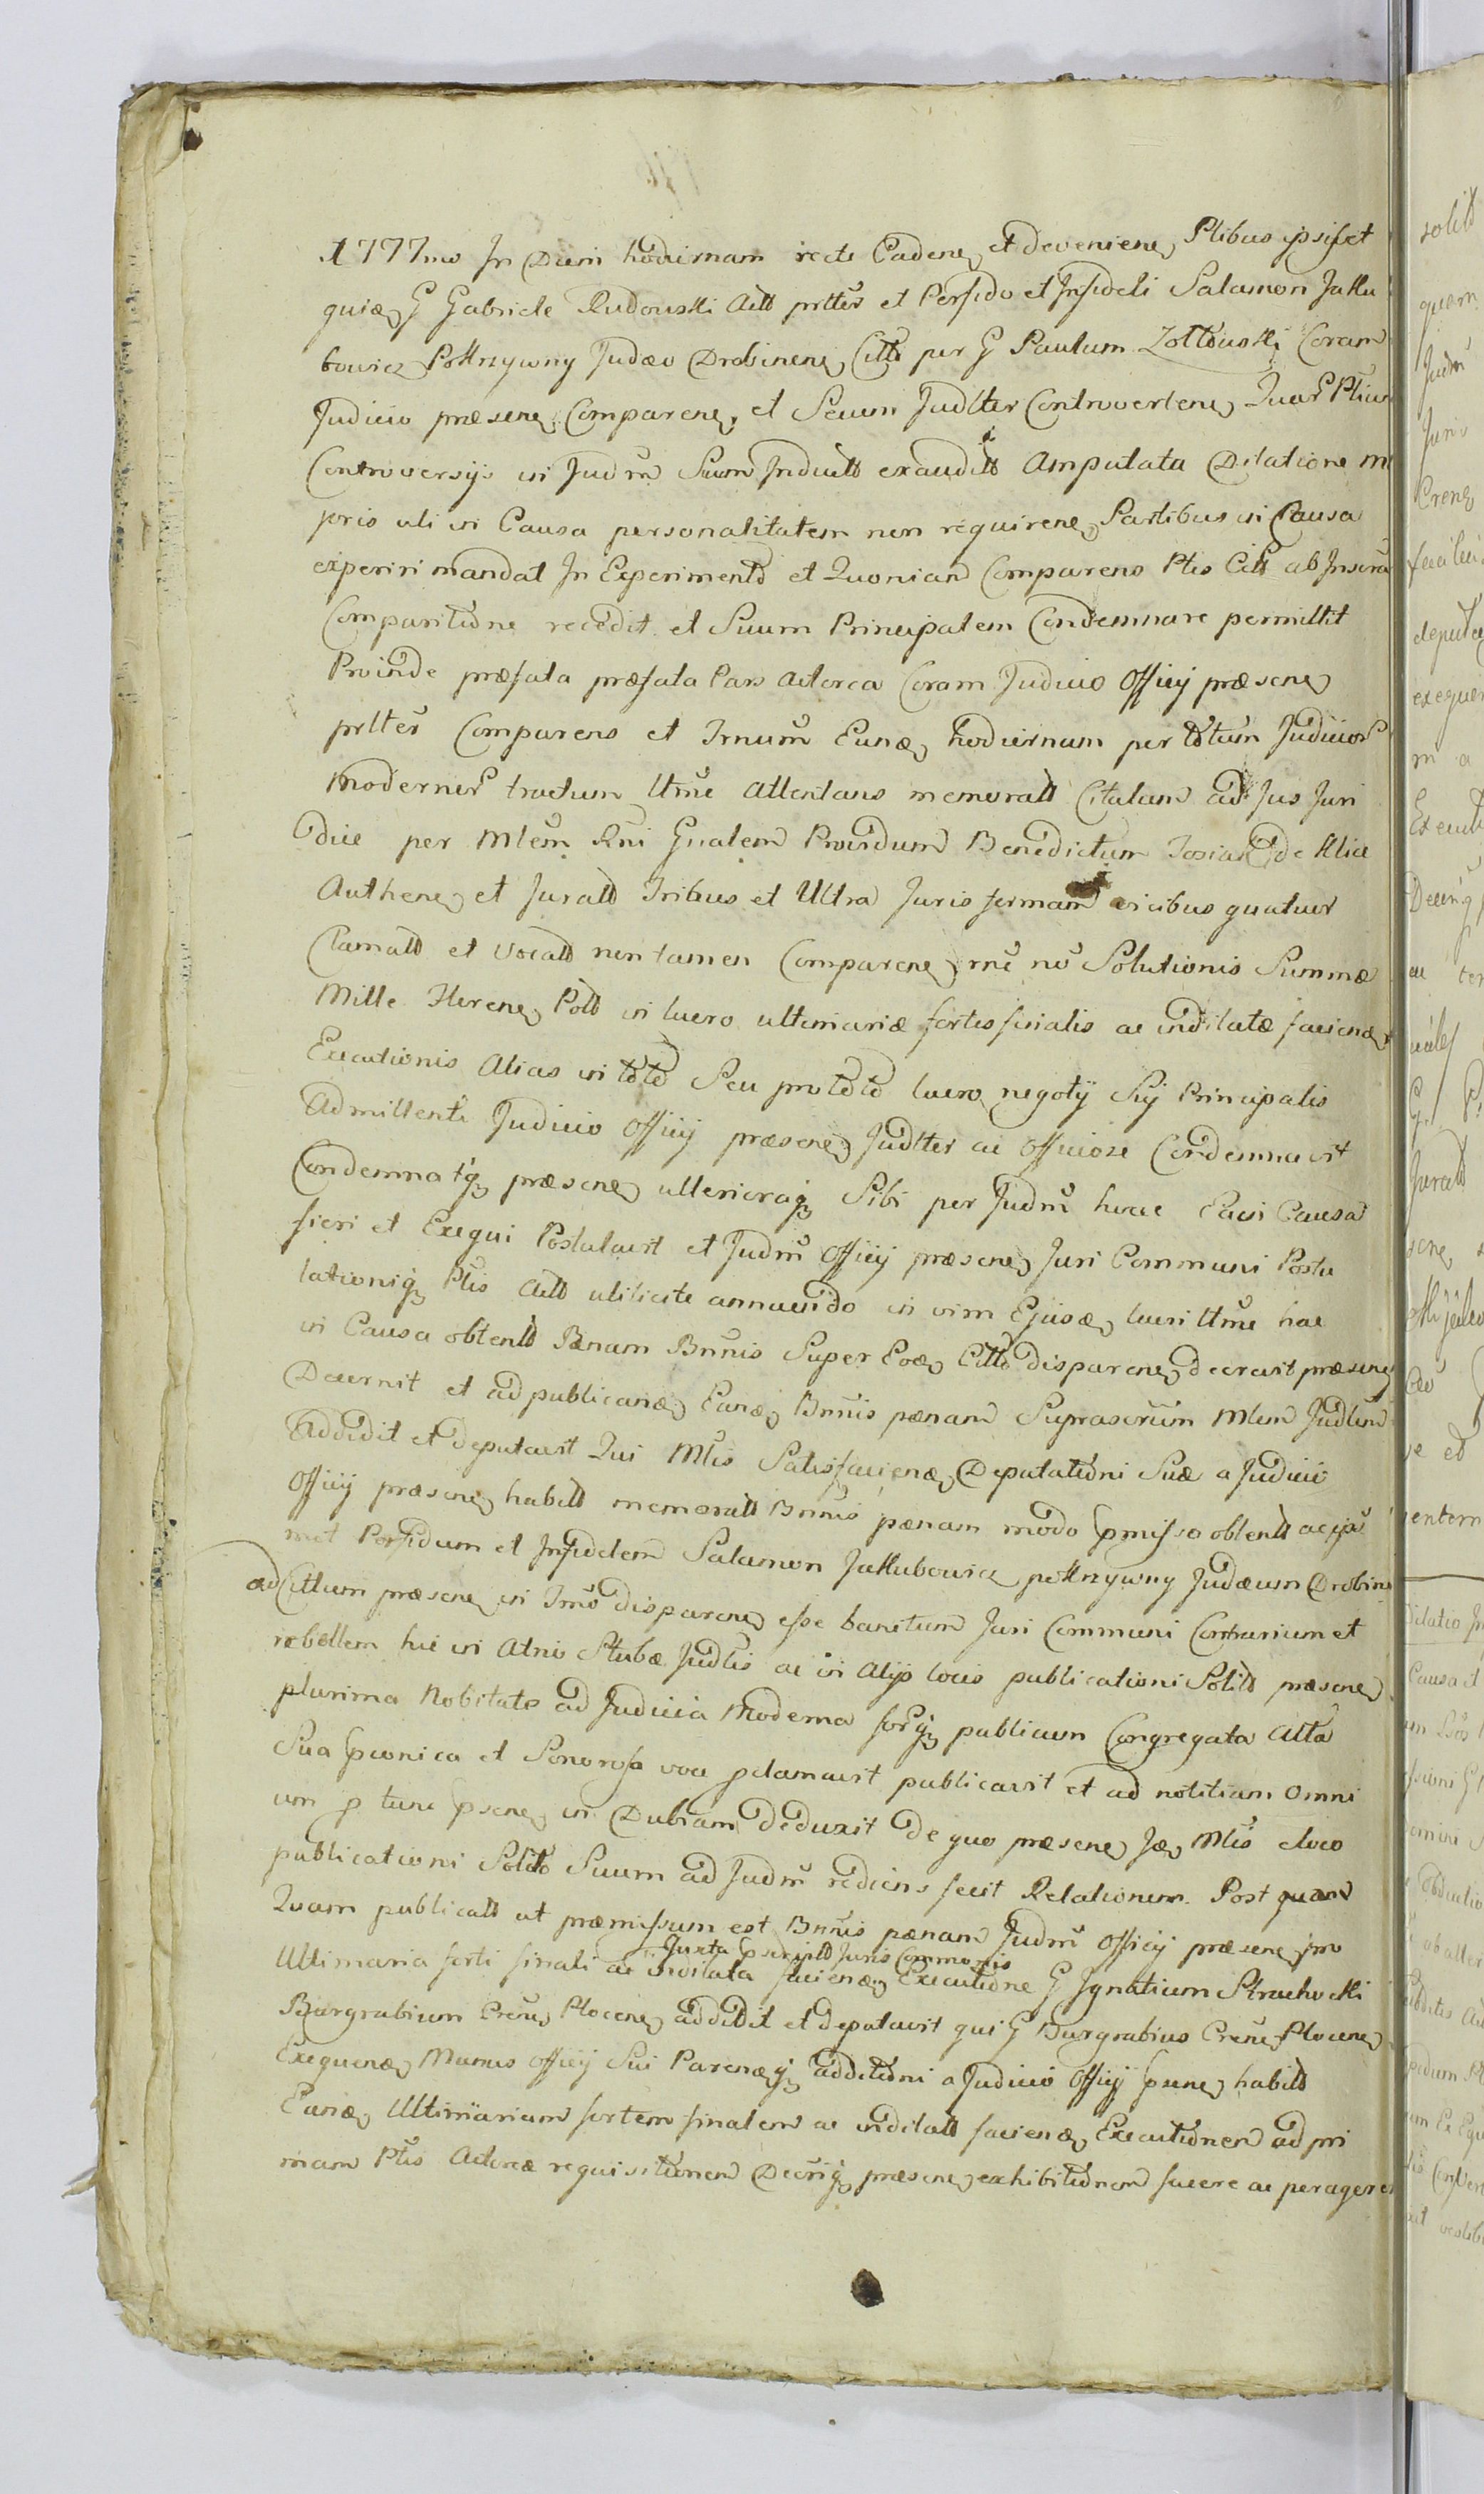 1777mo In Diem hodiernam recte Caden et devenien Ptibus ipsis et
quidē G Gabriele Rudowski Actt prltēr et Perfido et Infideli Salamon Jakku
bowicz Pokrzywny Judæo Drobinen Citt per G Paulum Zołtowski Coram
Judicio præsen Comparen, et Secum Judlter Controverten Quar Ptium
Controversijs in Judm̄ Suum Inductt exauditt Amputata Dilatione m
joris uti in Causa personalitatem non requiren Partibus in Causa
experiri mandat In Experimento et Quoniam Comparens Ptis Citt ab Inscrā
Comparitione recedit et Suum Principalem Condemnare permittit
Proinde præfata præfata Pars Actorea Coram Judicio Officij præsen
prltēr Comparens et Trnum Eund hodiernum per totum Judicior
Moderner tractum ltme Attentans memoratt Citatum ad Jus Juri
dice per Mlem Rni Gnalem Providum Benedictum de
Authen et Juratt Tribus et Ultra Juris formam vicibus quatuor
Clamatt et vocatt non tamen Comparen rne no Solutionis Summæ
Mille Floren Poll in lucro ultimariæ fortis finalis ac indilatæ faciend
Executionis Alias in toto Seu pro toto lucro negotij Sij Principalis
Admittente Judicio Officij præsen Judlter ac Officiose Condemnavit
Condemnatq præsen ulterioraq Sibi per Judm̄ hocce Eaci Causa
fieri et Exequi Postulavit et Judm̄ Officij præsen Juri Communi Postu
lationiq Ptis Actt utilicite annuendo in vim Ejusd lucri ltme hac
in Causa obtentt Pænam Bnnis Super Eod Citto disparen decrevit præsen
Decernit et ad publicand Eand Bnnis pænam Suprascrtum Mlem Judlem
Addidit et deputavit Qui Mlis Satisfaciend Deputationi Suæ a Judicio
Officij præsen habitt memoratt Bnnis pænam modo pmisso obtentt ac ips
met Perfidum et Infidelem Salamon Jakubowicz pokrzywny Judæum Drobin
ad Cittum præsen in Trno disparen esse banitum Juri Communi Contrarium et
rebellem hic in Atrio Stubæ Judlis ac in Alijs locis publicationi Solitt præsen
plurima Nobilitate ad Judicia Moderna forq publicum Congregata Alta
Sua pconica et Sonorosa voce pclamavit publicavit et ad notitiam Omni
um p tunc psen in Dubiam deduxit de quo præsen Jd Mlis eloco
publicationi Solito Suum ad Judm̄ rediens fecit Relationem. Post quam
Quam publicatt ut præmissum est Bnnis pænam Judm̄ Officij præsen pro
Juxta pscriptt Juris Communis
Ultimaria forti finali ac indilata faciend Executione G Ignatium Strachocki
Burgrabium Cren Plocen addidit et deputavit qui G Burgrabius Cren Plocen
Exequend Munus Officij Sui Parendq additioni a Judicio Officij psen habitt
Eand Ultimariam fortem finalem ac indilatt faciend Executionem ad pri
mam Ptis Actoreæ requisitionem Decriq præsen exhibitionem facere ac peragere